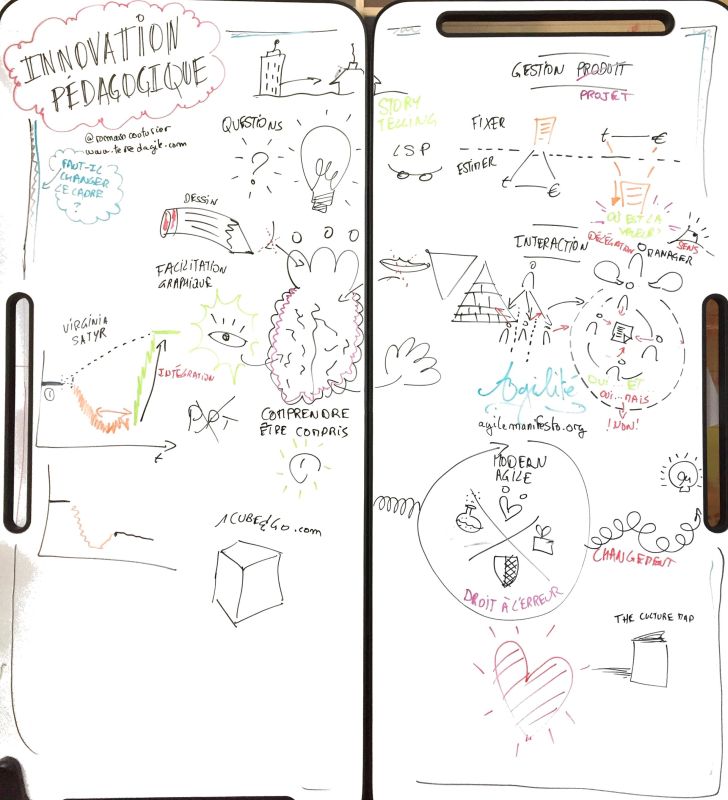 INNOVATION
PÉDAGOGIQUE
@romaincouturier
www.terredagile.com
FAUT-IL
CHANGER
LE CADRE
?
QUESTIONS
?
DESSIN
FACILITATION
GRAPHIQUE
VIRGINIA
SATYR
INTÉGRATION
1
t
COMPRENDRE
ÊTRE COMPRIS
1CUBE2GO.com
STORY
TELLING
LSP
GESTION PRODUIT
PROJET
FIXER
ESTIMER
t €
t €
OÙ EST LA
VALEUR?
DÉLÉGATION
SENS
INTERACTION
MANAGER
OUI... ET
OUI...MAIS
!NON!
Agilité
agilemanifesto.org
MODERN
AGILE
DROIT À L'ERREUR
CHANGEMENT
THE CULTURE MAP